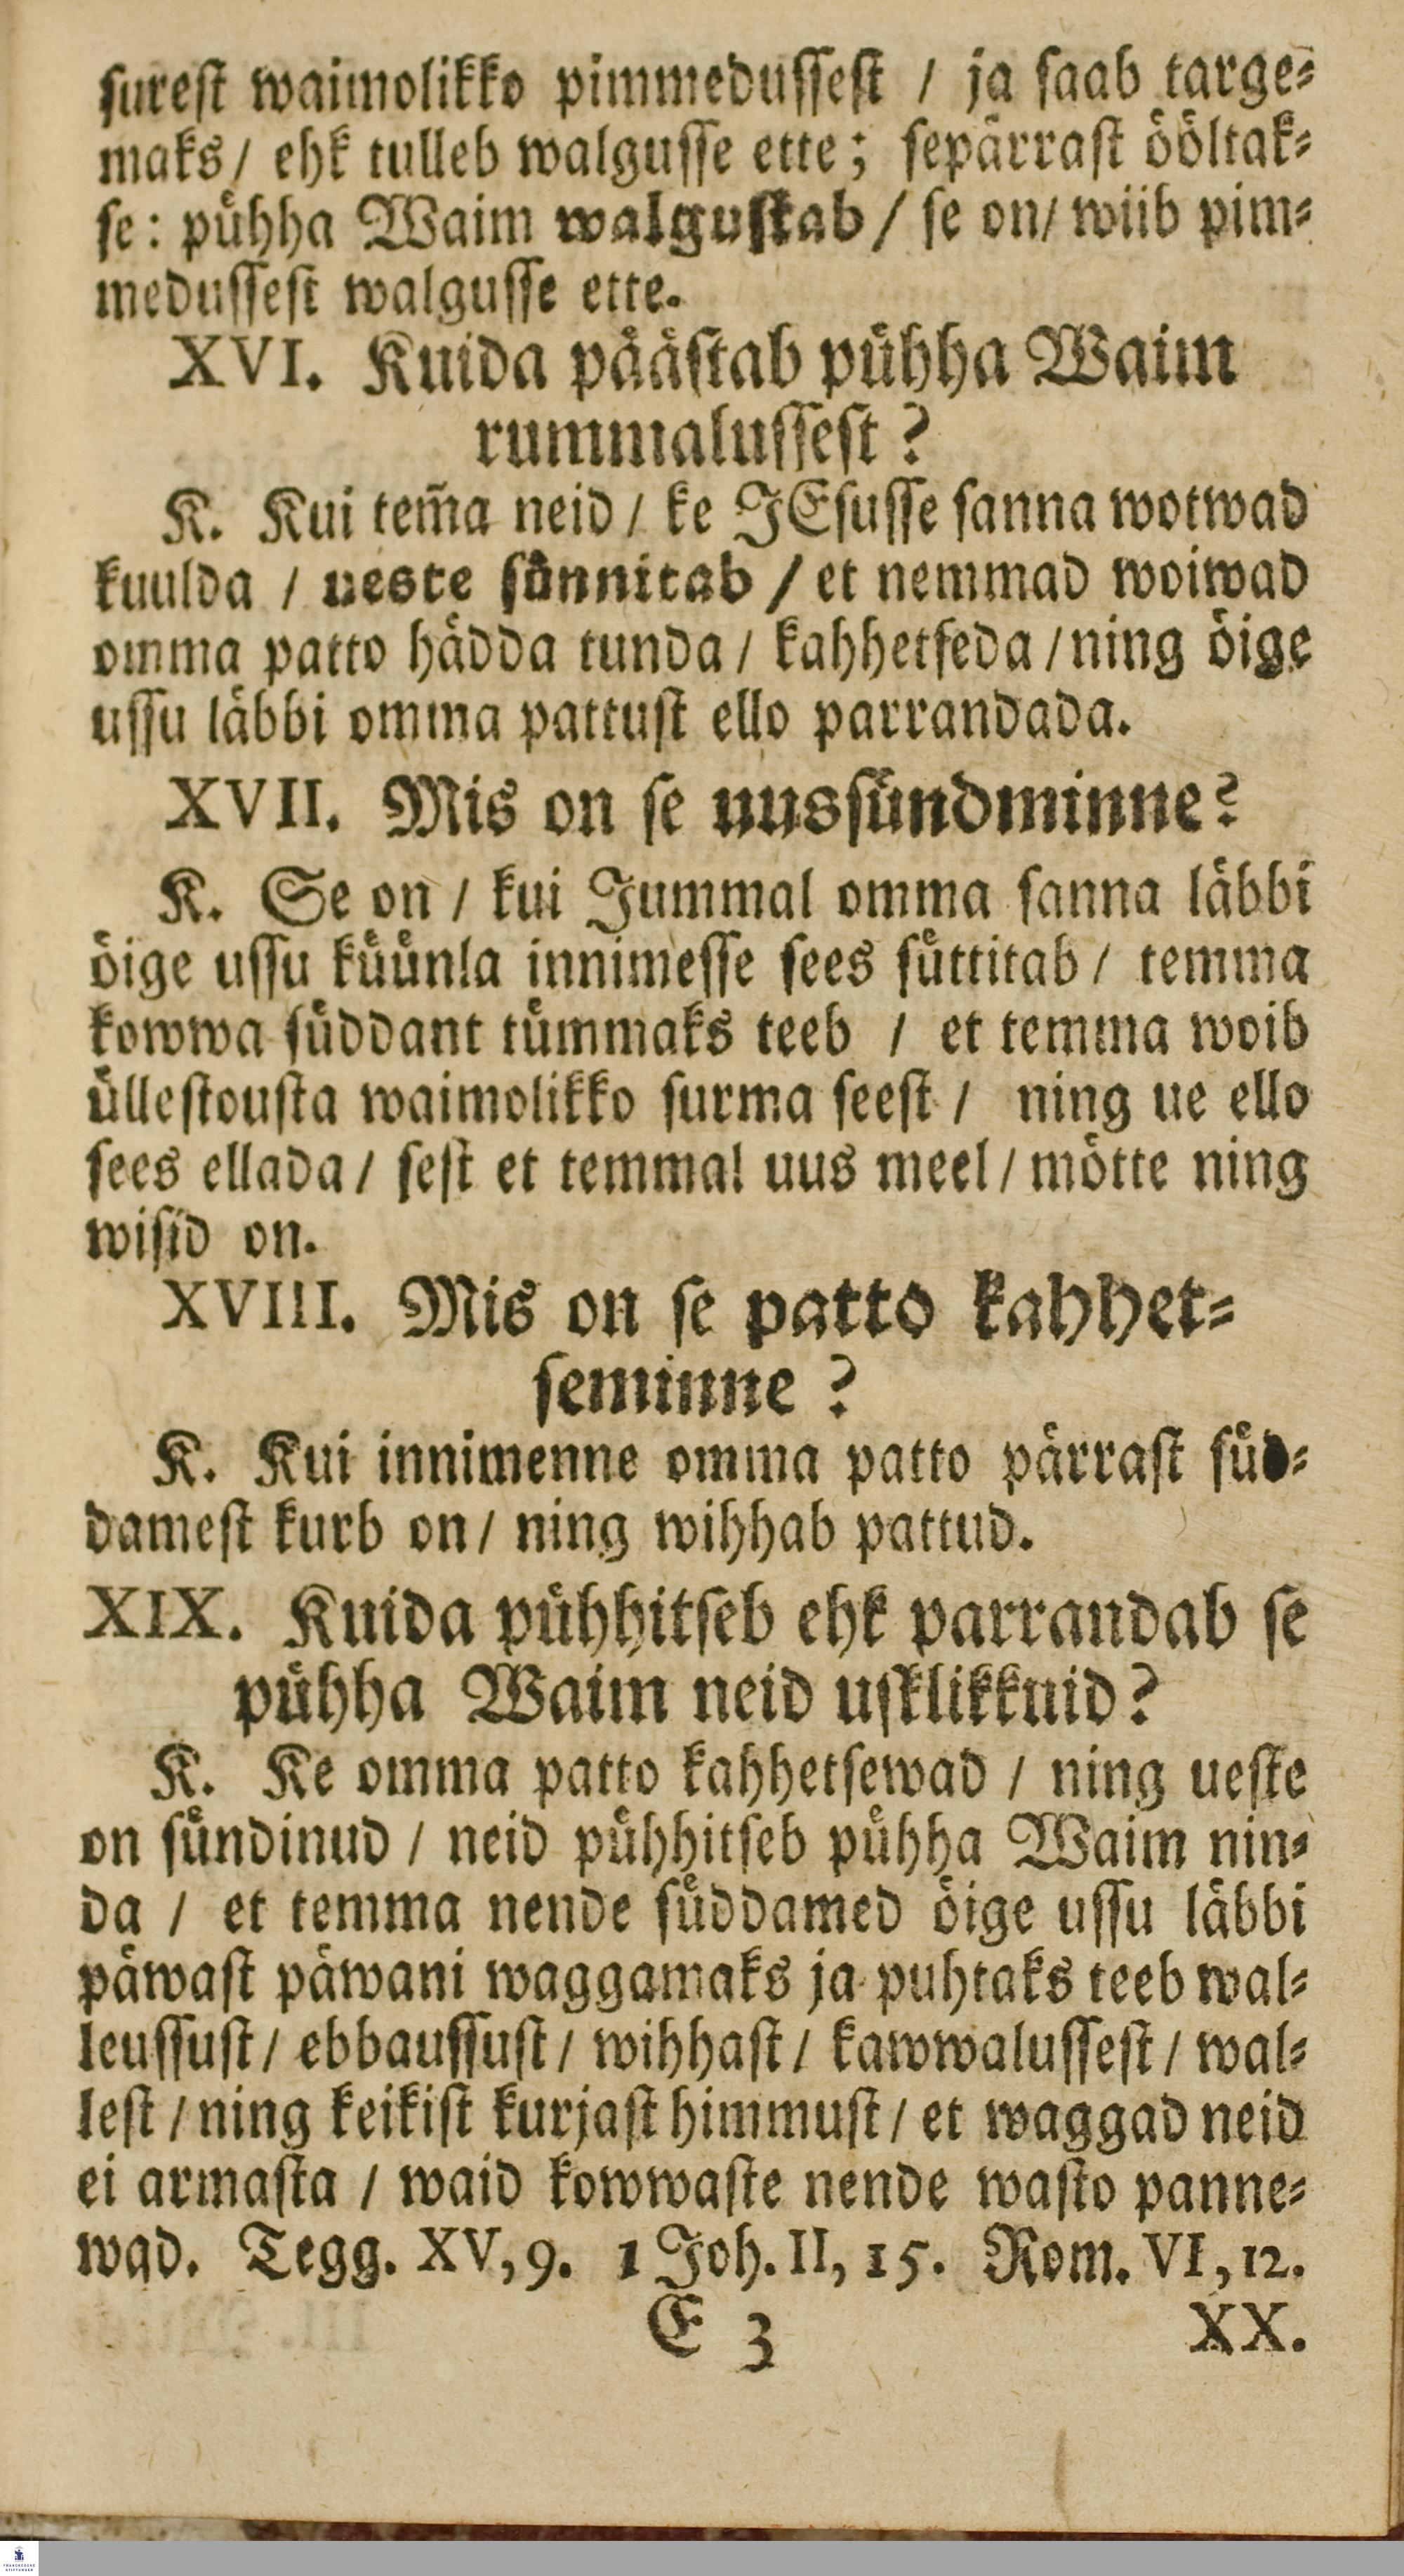 surest waimolikko pimmedussest / ja saab targe-
maks / ehk tulleb walgusse ette; sepärrast ööltak-
se: pühha Waim walgustab / se on / wiib pim-
medussest walgusse ette.
XVI. Kuida päästab pühha Waim
rummalussest?
K. Kui tem̃a neid / ke JEsusse sanna wotwad
kuulda / ueste sünnitab / et nemmad woiwad
omma patto hädda tunda / kahhetseda / ning öige
ussu läbbi omma pattust ello parrandada.
XVII. Mis on se uussündminne?
K. Se on / kui Jummal omma sanna läbbi
öige ussu küünla innimesse sees süttitab / temma
kowwa süddant tümmaks teeb / et temma woib
üllestousta waimolikko surma seest / ning ue ello
sees ellada / sest et temmal uus meel / mötte ning
wisid on.
XVIII. Mis on se patto kahhet-
seminne?
K. Kui innimenne omma patto pärrast süd-
damest kurb on / ning wihhab pattud.
XIX. Kuida pühhitseb ehk parrandab se
pühha Waim neid usklikkuid?
K. Ke omma patto kahhetsewad / ning ueste
on sündinud / neid pühhitseb pühha Waim nin-
da / et temma nende süddamed öige ussu läbbi
päwast päwani waggamaks ja puhtaks teeb wal-
leussust / ebbaussust / wihhast / kawwalussest / wal-
lest / ning keikist kurjast himmust / et waggad neid
ei armasta / waid kowwaste nende wasto panne-
wad. Tegg. XV, 9. 1 Joh. II, 15. Rom. VI, 12.
E 3 XX.